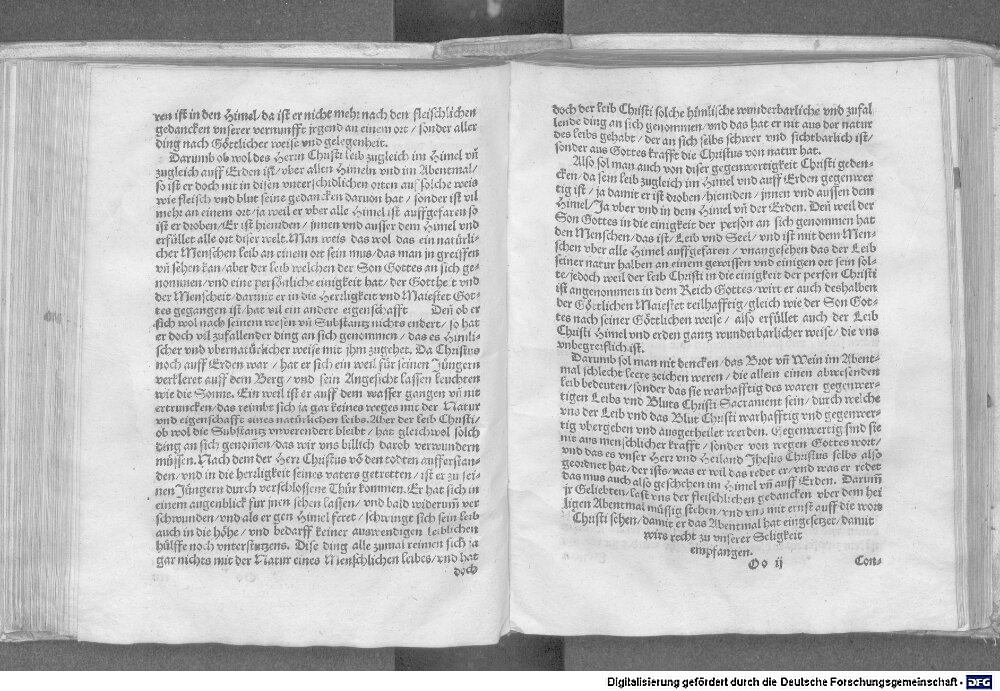 ren ist in den Himel/da ist er nicht mehr nach den fleischlichen
gedancken vnserer vernunfft irgend an einem ort/sonder aller
ding nach Göttlicher weise vnd gelegenheit.
Darumb ob wol des Herrn Christi leib zugleich im Himel vñ
zugleich auff Erden ist/vber allen Himeln vnd im Abentmal/
so ist er doch nit in disen vnterschidlichen orten auf solche weis
wie fleisch vnd blut seine gedancken daruon hat/sonder ist vil
mehr an einem ort/ja weil er vber alle Himel ist auffgefaren so
ist er droben/Er ist hieniden/jnnen vnd ausser dem Himel vnd
erfüllet alle ort diser welt. Man weis das wol das ein natürli-
cher Menschen leib an einem ort sein mus/das man jn greiffen
vñ sehen kan/aber der leib welchen der Son Gottes an sich ge-
nommen/vnd eine persönliche einigkeit hat/der Gottheit vnd
der Menscheit/darmit er in die Herrligkeit vnd Maiestet Got-
tes gegangen ist/hat vil ein andere eigenschafft Deñ ob er
sich wol nach seinem wesen vñ Substantz nichts endert/so hat
er doch vil zufallender ding an sich genommen/das es Himli-
scher vnd vbernatürlicher weise mit jhm zugehet. Da Christus
noch auff Erden war/hat er sich ein weil für seinen Jüngern
verkleret auff dem Berg/vnd sein Angesicht lassen leuchten
wie die Sonne. Ein weil ist er auff dem wasser gangen vñ nit
ertruncken/das reimbt sich ja gar keines weges mit der Natur
vnd eigenschafft eines natürlichen leibs. Aber der leib Christi/
ob wol die Substantz vnuerendert bleibt/hat gleichwol solch
ding an sich genom̃en/das wir vns billich darob verwundern
müssen. Nach dem der Herr Christus võ den todten aufferstan-
den/vnd in die herrligkeit seines vaters getretten/ist er zu sei-
nen Jüngern durch verschlossene Thür kommen. Er hat sich in
einem augenblick für jnen sehen lassen/vnd bald widerum̃ ver
schwunden/vnd als er gen Himel feret/schwingt sich sein leib
auch in die höhe/vnd bedarff keiner auswendigen leiblichen
hülffe noch vnterstützens. Dise ding alle zumal reimen sich ja
gar nichts mit der Natur eines Menschlichen leibes/vnd hat
doch
doch der leib Christi solche himlische wunderbarliche vnd zufal
lende ding an sich genommen/vnd das hat er nit aus der natur
des leibs gehabt/der an sich selbs schwer vnd sichtbarlich ist/
sonder aus Gottes krafft die Christus von natur hat.
Also sol man auch von diser gegenwertigkeit Christi geden-
cken/da sein leib zugleich im Himel vnd auff Erden gegenwer
tig ist/ja damit er ist droben/hieniden/jnnen vnd aussen dem
Himel/Ja vber vnd in dem Himel vñ der Erden. Deñ weil der
Son Gottes in die einigkeit der person an sich genommen hat
den Menschen/das ist/Leib vnd Seel/vnd ist mit dem Men-
schen vber alle Himel auffgefaren/vnangesehen das der Leib
seiner natur halben an einem gewissen vnd einigen ort sein sol-
te/jedoch weil der leib Christi in die einigkeit der person Christi
ist angenommen in dem Reich Gottes/wirt er auch deshalben
der Göttlichen Maiestet teilhafftig/gleich wie der Son Got-
tes nach seiner Göttlichen weise/also erfüllet auch der Leib
Christi Himel vnd erden gantz wunderbarlicher weise/die vns
vnbegreiflich ist.
Darumb sol man nit dencken/das Brot vñ Wein im Abent-
mal schlecht leere zeichen weren/die allein einen abwesenden
leib bedeuten/sonder das sie warhafftig des waren gegenwer-
tigen Leibs vnd Bluts Christi Sacrament sein/durch welche
vns der Leib vnd das Blut Christi warhafftig vnd gegenwer-
tig vbergeben vnd ausgetheilet werden. Gegenwertig sind sie
nit aus menschlicher krafft/sonder von wegen Gottes wort/
vnd das es vnser Herr vnd Heiland Jhesus Christus selbs also
geordnet hat/der ists/was er wil das redet er/vnd was er redet
das mus auch also geschehen im Himel vñ auff Erden. Darum̃
jr Geliebten/last vns der fleischlichen gedancken vber dem hei
ligen Abentmal müssig stehen/vnd vns mit ernst auff die wort
Christi sehen/damit er das Abentmal hat eingesetzet/damit
wirs recht zu vnserer Seligkeit
empfangen.
Oo ij Con-
Digitalisierung gefördert durch die Deutsche Forschungsgemeinschaft - DFG